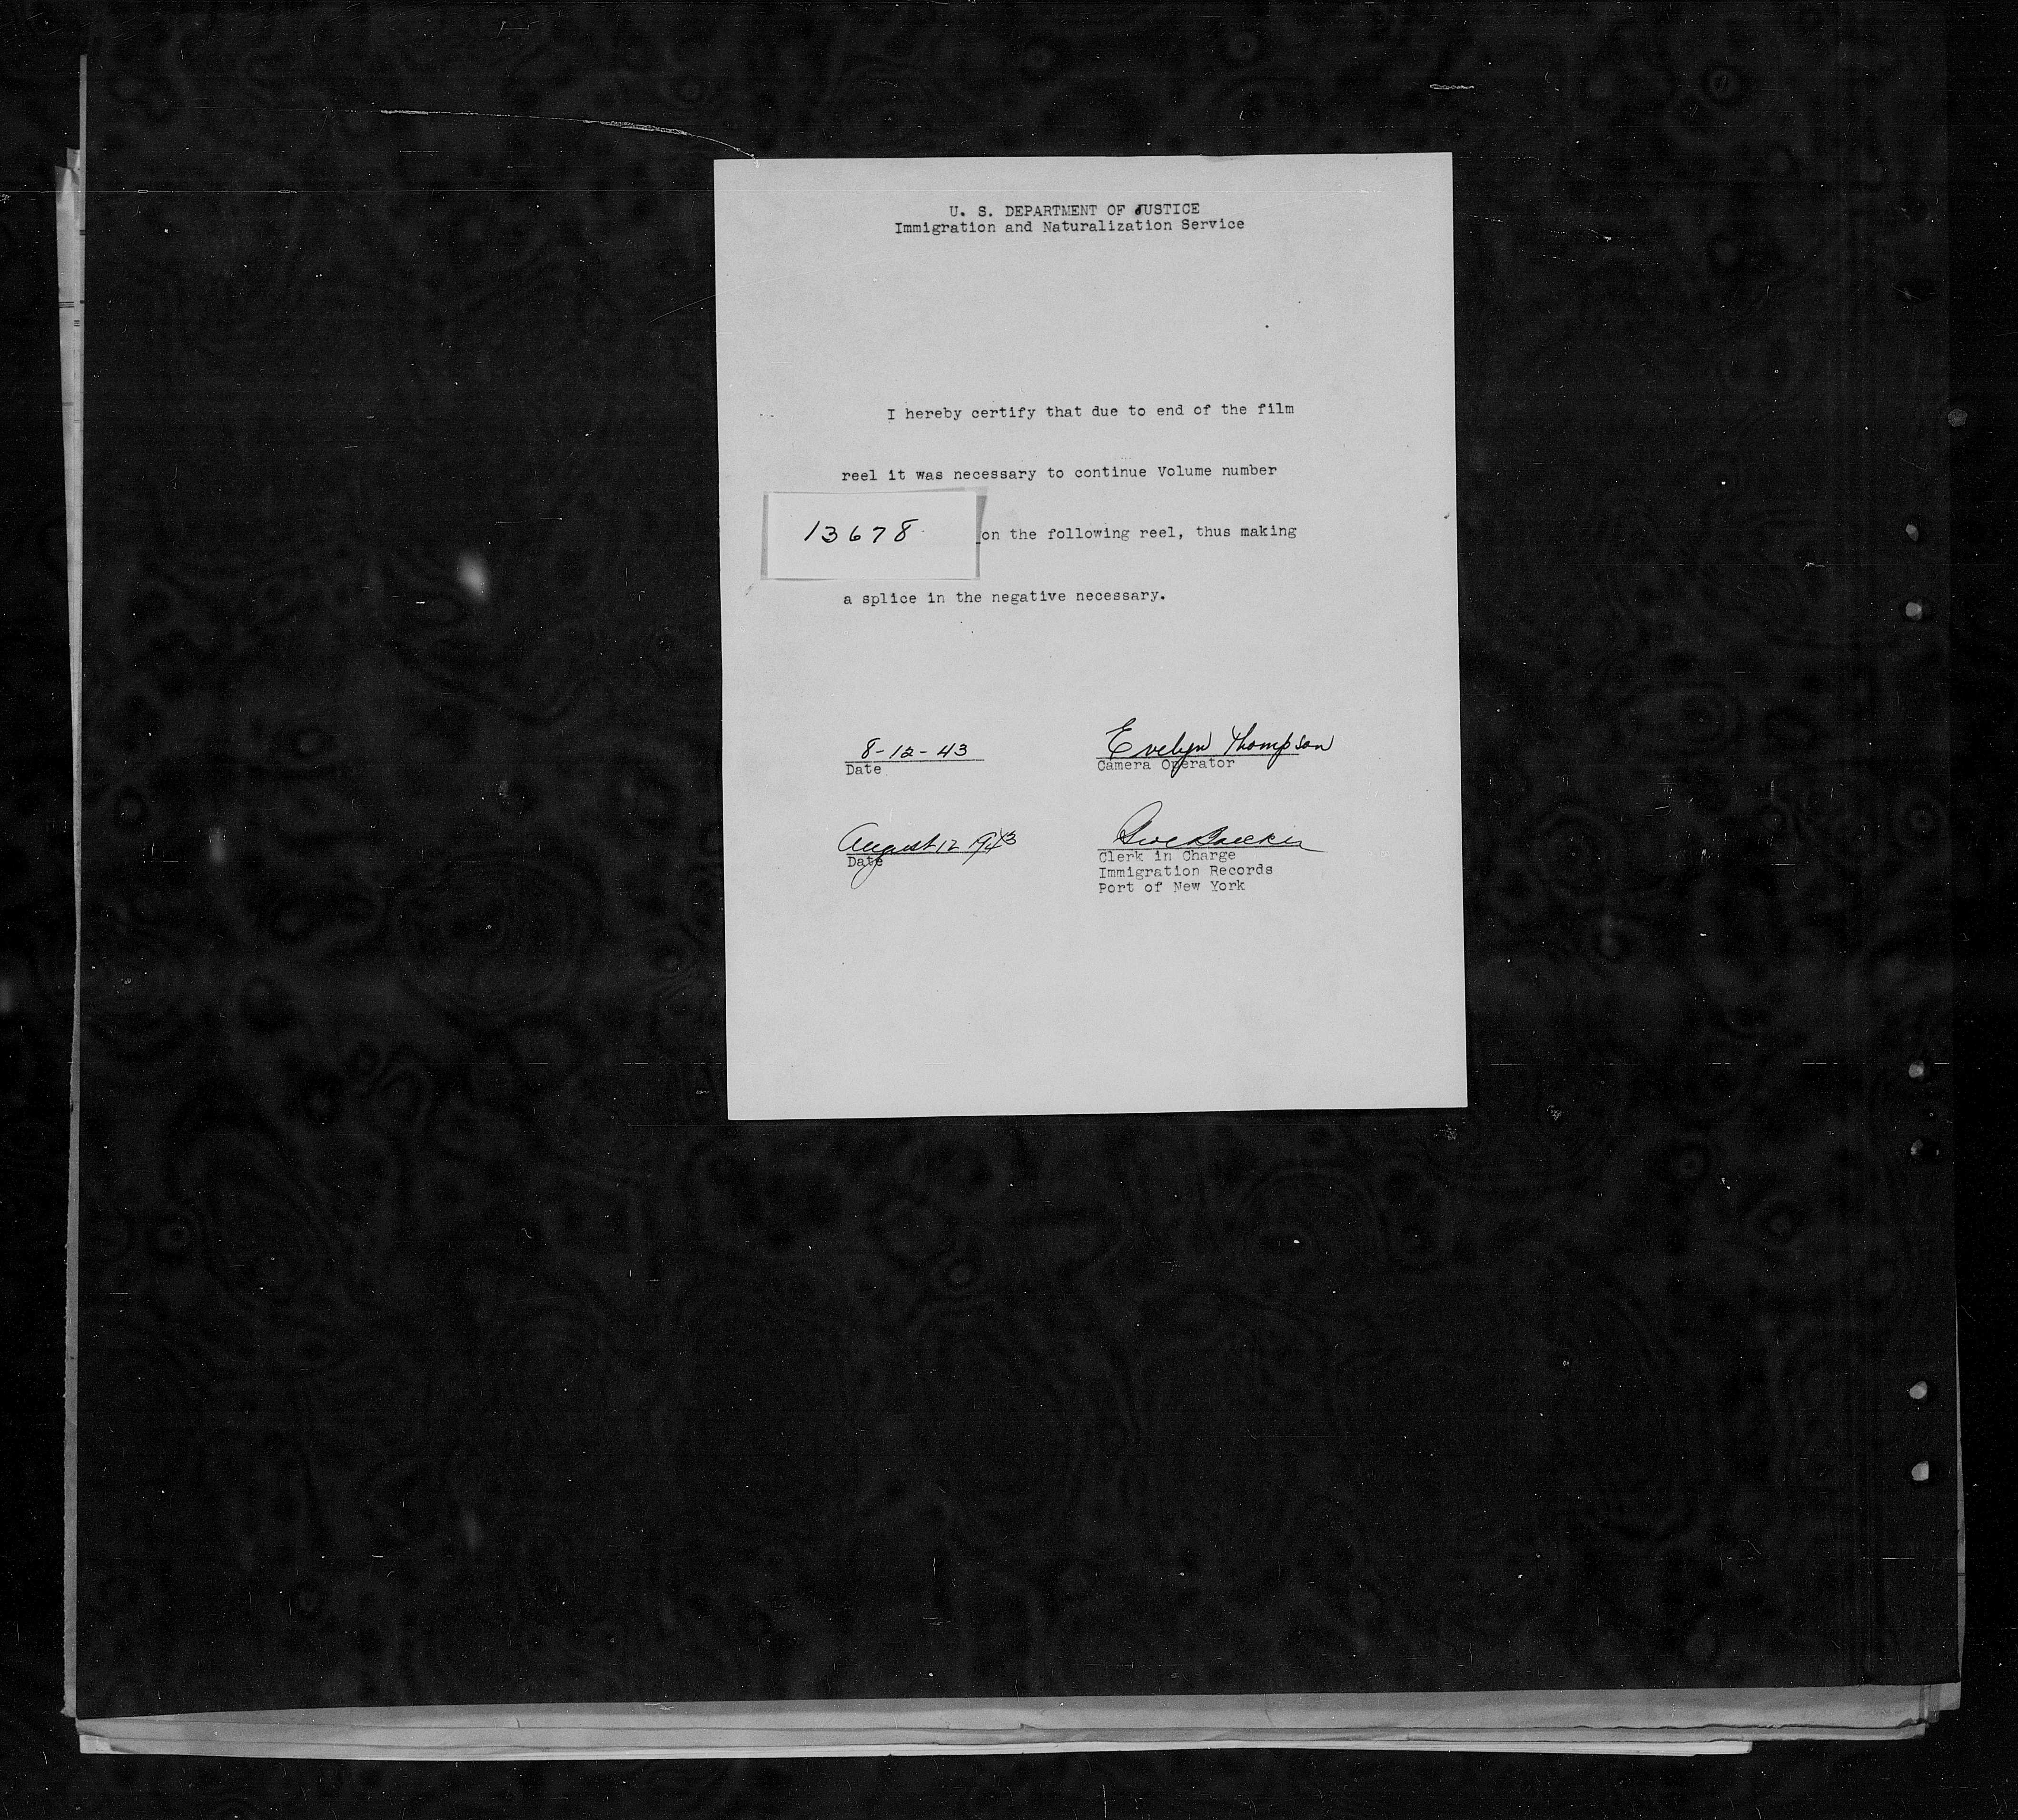 U. S. DEPARTMENT OF JUSTICE
Immigration and Naturalization Service
I hereby certify that due to end of the film
reel it was necessary to continue Volume number
13678 on the following reel, thus making
a splice in the negative necessary.
8-12-43 Evelyn Thompson
Date Camera Operator
August 12 1943
Date Clerk in Charge
Immigration Records
Port of New York